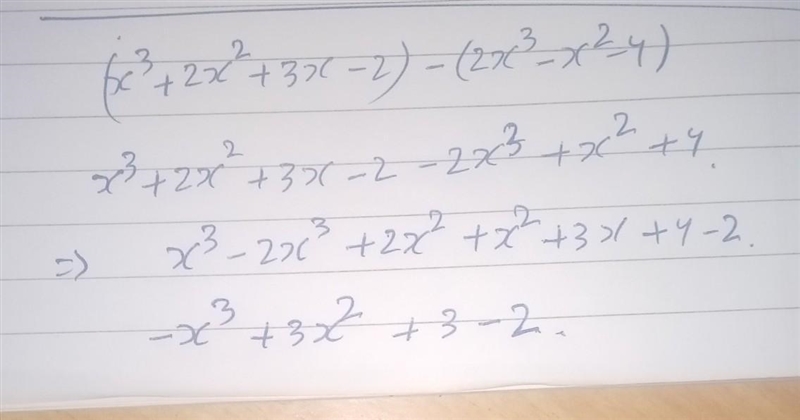 (x³ + 2x² + 3x - 2) - (2x³ - x² - 4)
x³ + 2x² + 3x - 2 - 2x³ + x² + 4.
=> x³ - 2x³ + 2x² + x² + 3x + 4 - 2.
-x³ + 3x² + 3 - 2.